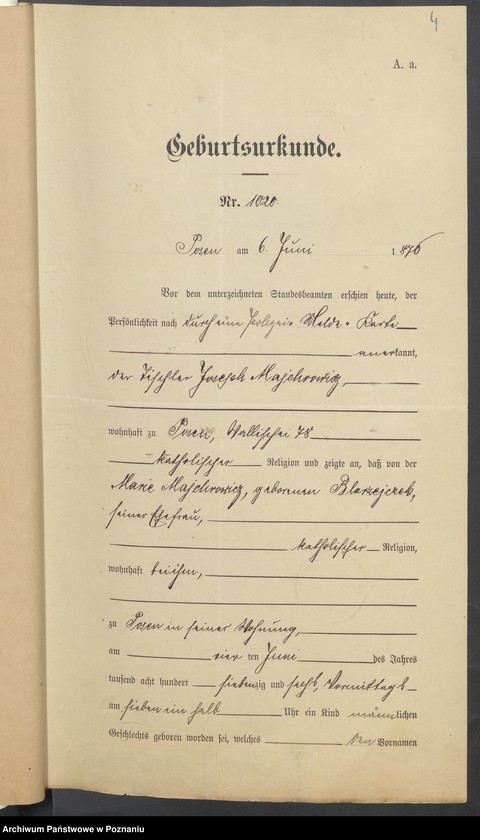 4
A. a.
Geburtsurkunde.
Nr. 1020.
Posen am 6. Juni 1876
Vor dem unterzeichneten Standesbeamten erschien heute, der
Persönlichkeit nach durch eine Polizei-Melde-Karte
anerkannt,
der Tischler Joseph Majchrowicz,
wohnhaft zu Posen, Wallischei 78
katholischer Religion und zeigte an, daß von der
Marie Majchrowicz, geborenen
seiner Ehefrau,
katholischer Religion,
wohnhaft bei ihm,
zu Posen in seiner Wohnung,
am vier ten Juni des Jahres
tausend acht hundert siebenzig und sechs, Vormittags
um sieben ein halb Uhr ein Kind männlichen
Geschlechts geboren worden sei, welches den Vornamen
Archiwum Państwowe w Poznaniu